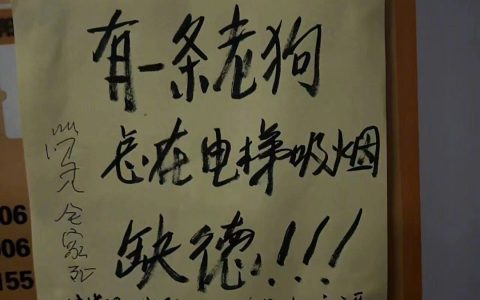 有一条老狗
总在电梯吸烟
缺德!!!
咒 全家死
06
006
155